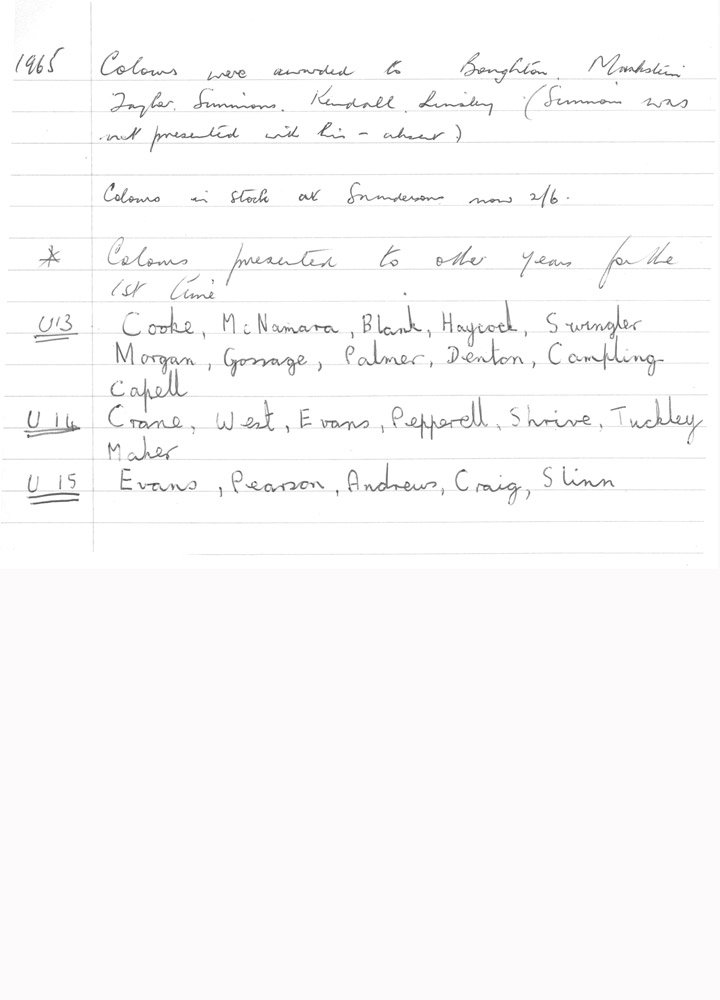 1965 Colours were awarded to Boughton. Monkstein
Taylor. Simmions. Kendall. Linsley (Simmions was
not presented with his - absent)
Colours in stock at Saundersons now 2/6.
* Colours presented to other years for the
1st time
U13 Cooke, McNamara, Blank, Haycock, Swingler
Morgan, Gossage, Palmer, Denton, Campling
Capell
U14 Crane, West, Evans, Pepperell, Shrive, Tuckley
Maher
U15 Evans, Pearson, Andrews, Craig, Slinn